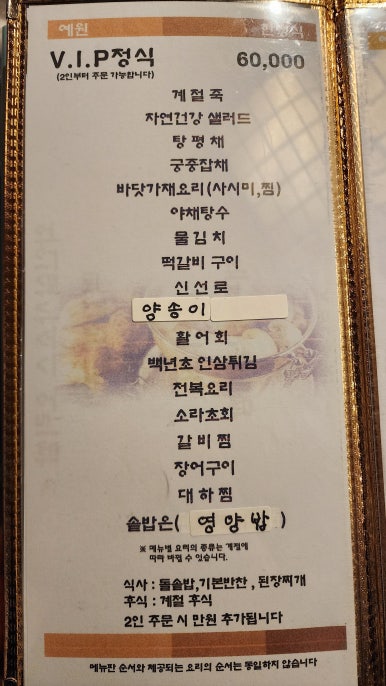 예원 한정식
V.I.P정식 60,000
(2인부터 주문 가능합니다)
계절죽
자연건강 샐러드
탕평채
궁중잡채
바닷가재요리(사시미,찜)
야채탕수
물김치
떡갈비 구이
신선로
양송이
활어회
백년초 인삼튀김
전복요리
소라초회
갈비찜
장어구이
대하찜
솥밥은( 영양밥 )
※ 메뉴별 요리의 종류는 계절에
따라 바뀔 수 있습니다.
식사 : 돌솥밥,기본반찬 , 된장찌개
후식 : 계절 후식
2인 주문시 만원 추가됩니다
메뉴판 순서와 제공되는 요리의 순서는 동일하지 않습니다